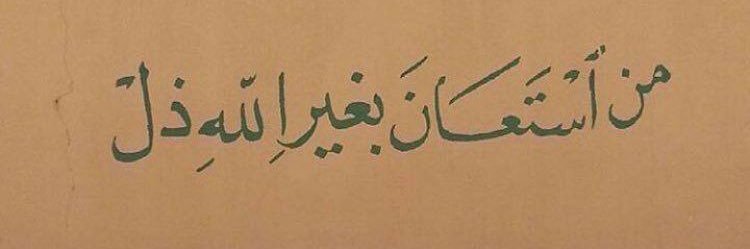 من ٱسْتَعَانَ بغيرِ اللّهِ ذلْ